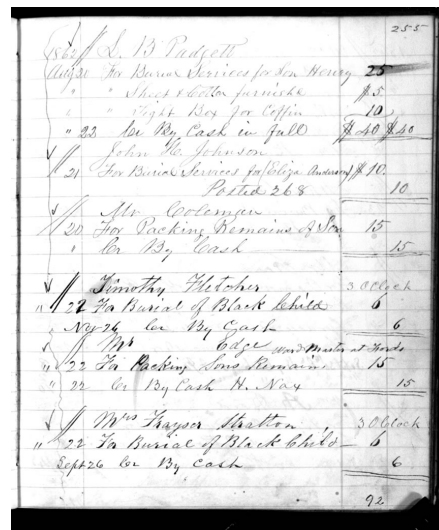 255
1862 // L. B. Padgett
Aug 20 For Burial Services for Son Henry 25
" " Sheet & Cotton furnished $5
" Tight Box for Coffin 10
" 22 Cr By Cash in full $40 $40
// John H. Johnson
21 For Burial Services for (Eliza Anderson) $10
Posted 268 10
// Mr Coleman
20 For Packing Remains of Son 15
" Cr By Cash 15
// Timothy Fletcher 3 OClock
" 22 For Burial of Black Child 6
26 Cr By Cash 6
// Mr Edge Ward Master at Fords
" 22 For Packing Sons Remains 15
" 22 Cr By Cash H. Nax 15
// Mrs Frayser Stratton 3 OClock
" 22 For Burial of Black Child 6
Sept 26 Cr By Cash 6
92